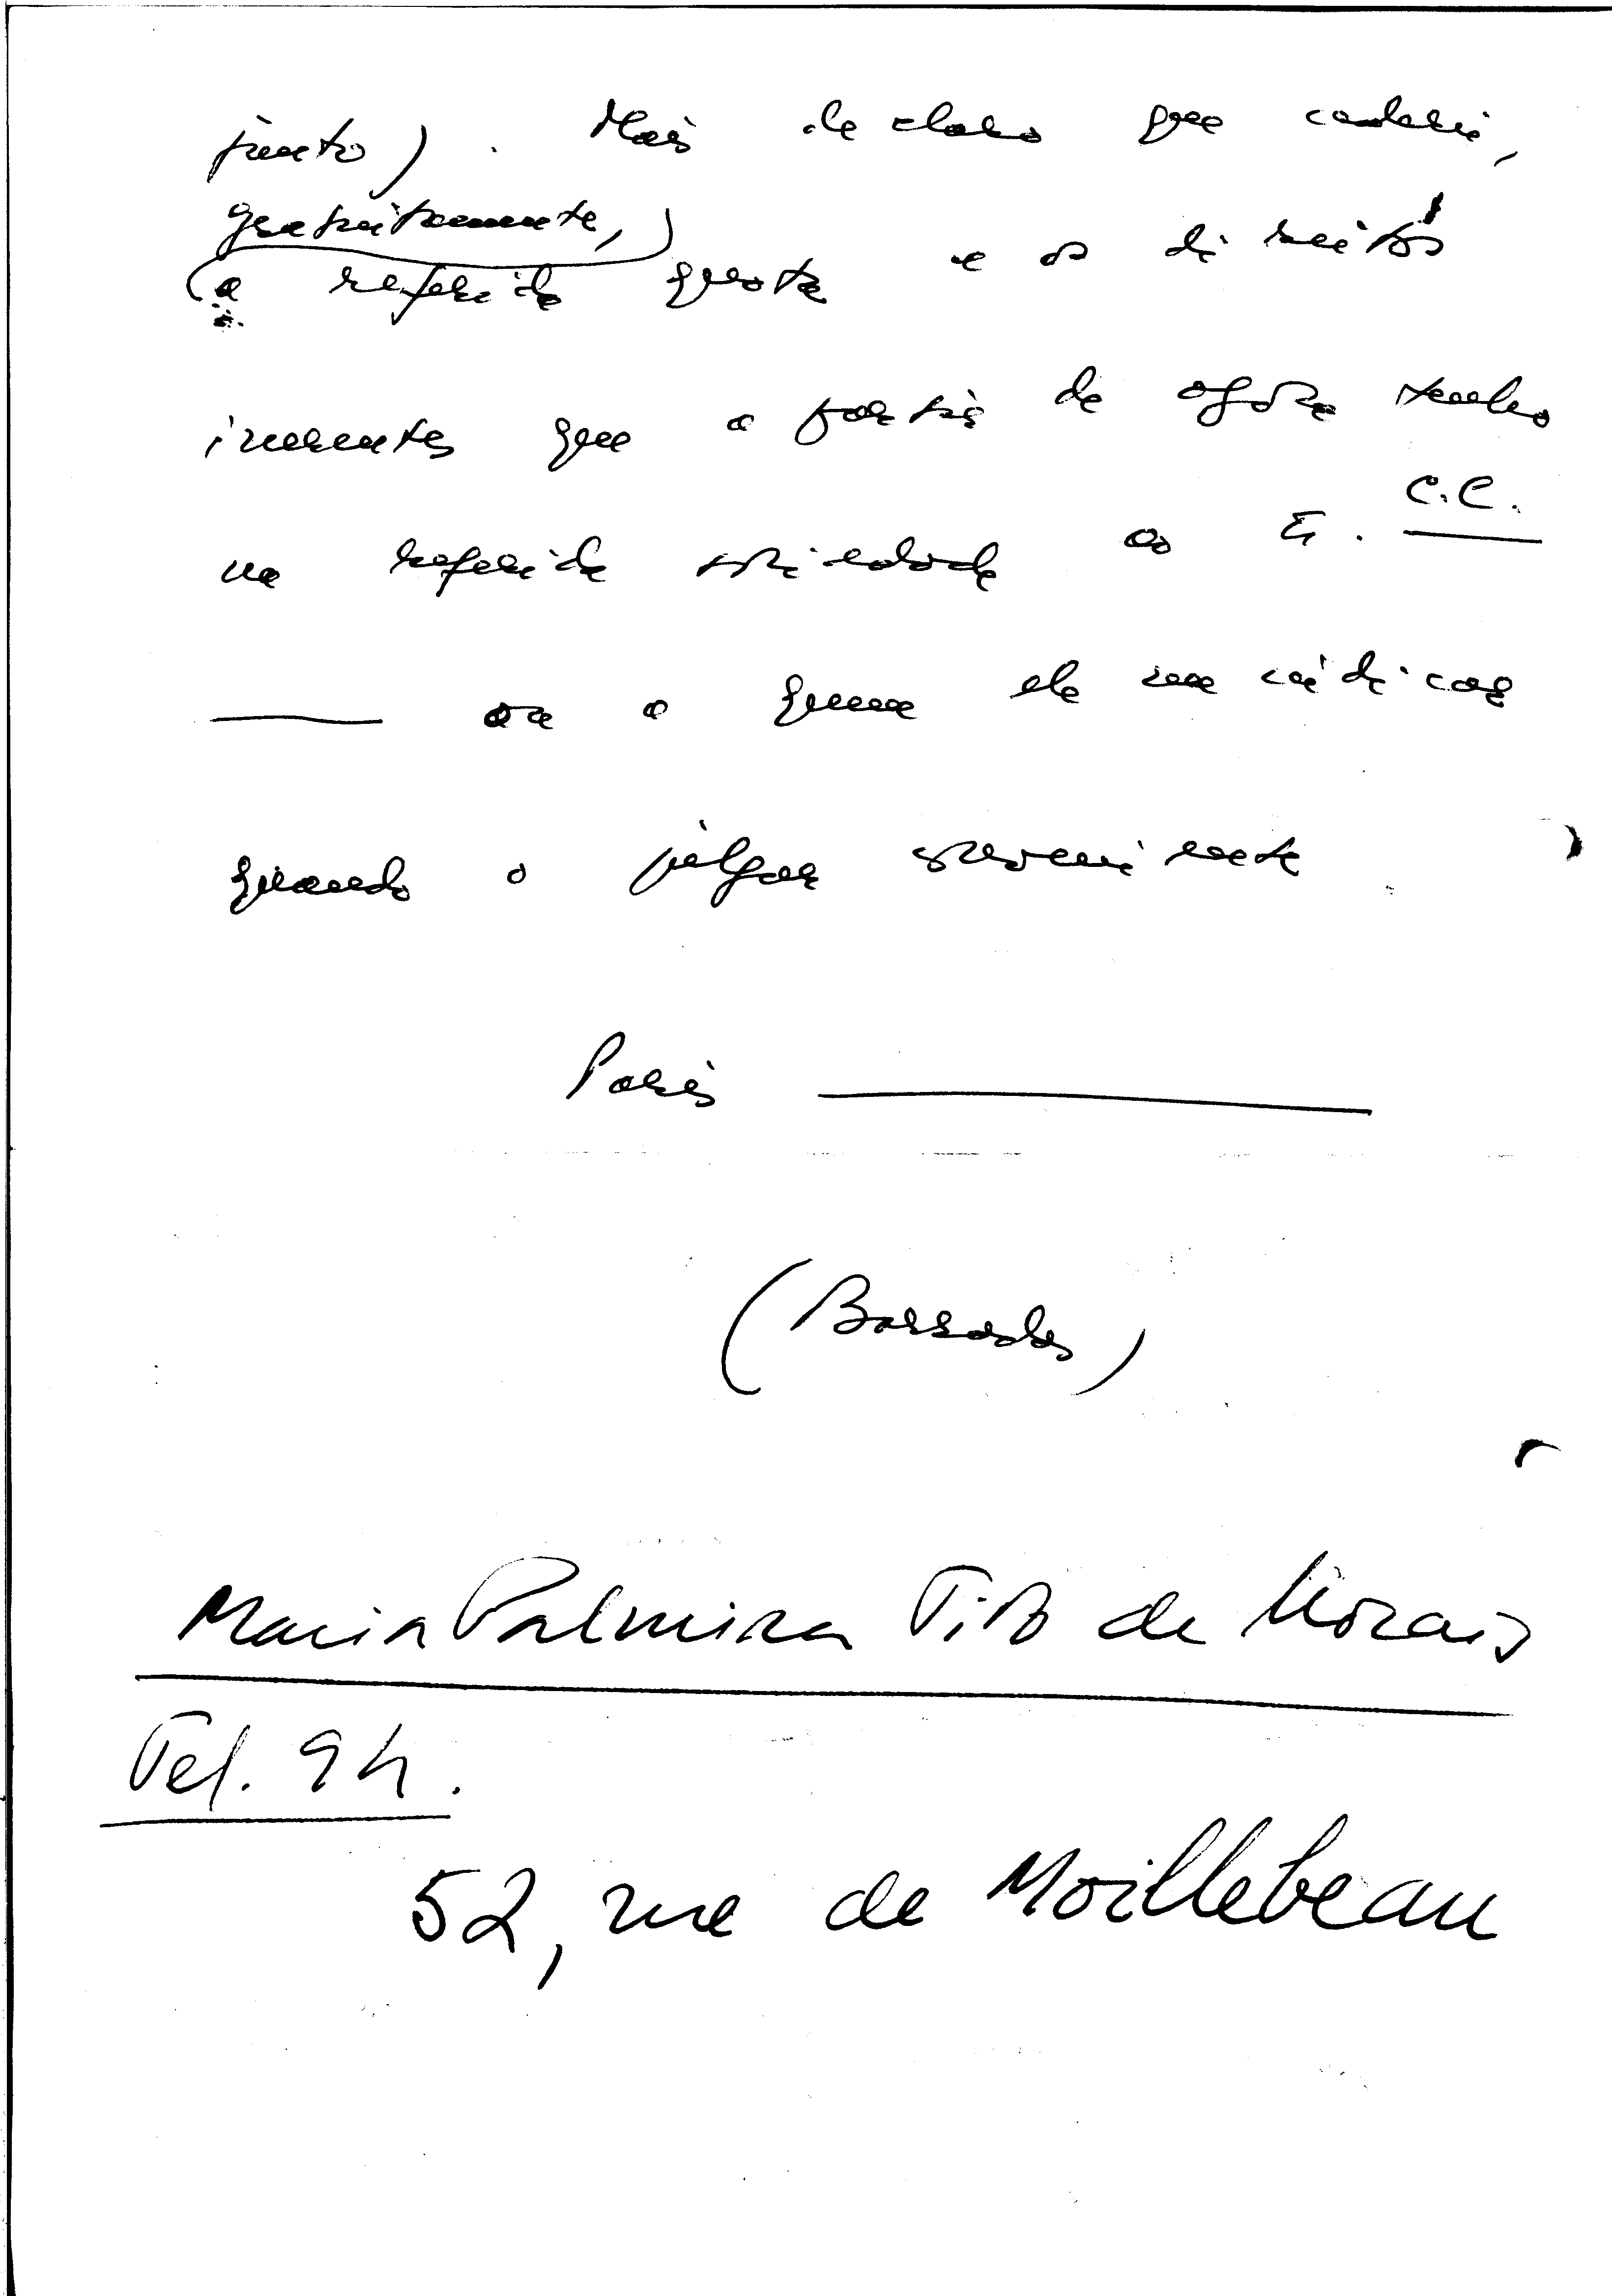 junto). Mais declaro que cederei,
gratuitamente,
a referida quota e os direitos
inerentes que a partir de agora tenho
na referida sociedade ao E. C.C.
ou a quem ele me indicar
quando o julgar conveniente
Paris
(Barradas)
Maria Palmira Tito de Morais
Tel. 9h.
52, rue de Moillebeau